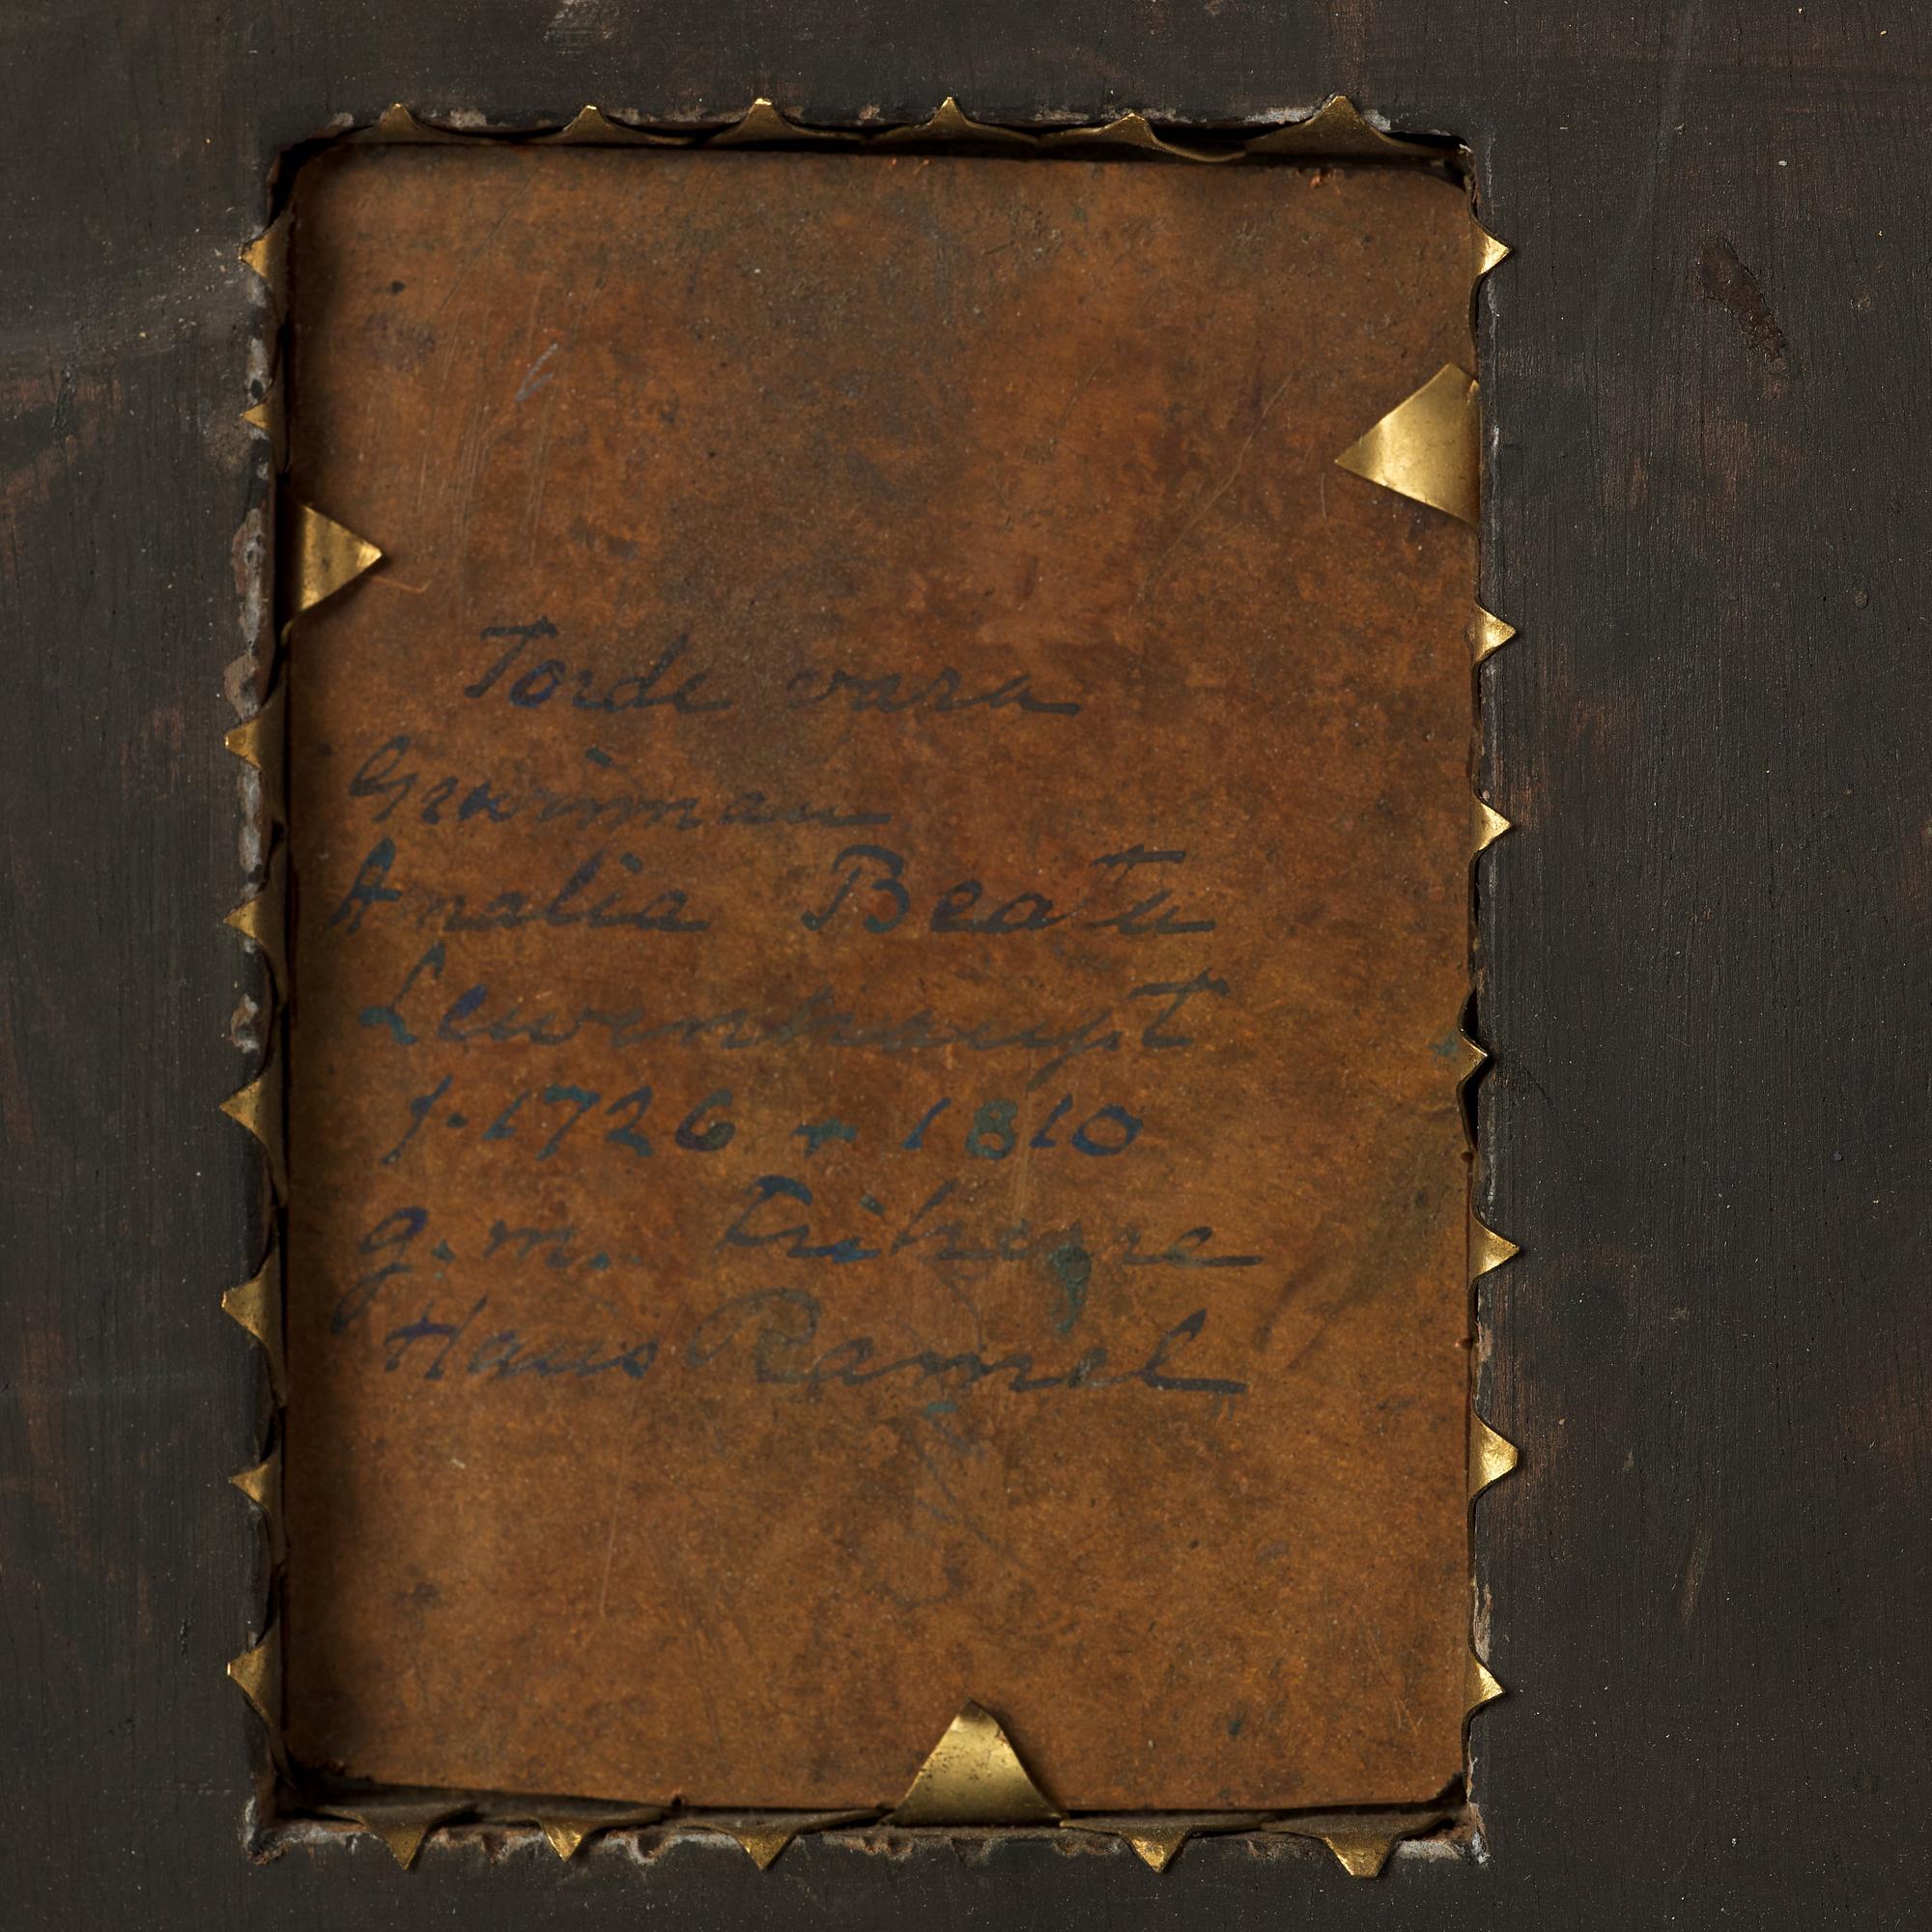 Torde vara
Grevinnan
Amalia Beata
Lewenhaupt
f. 1726 + 1810
g. m. Friherre
Hans Ramel